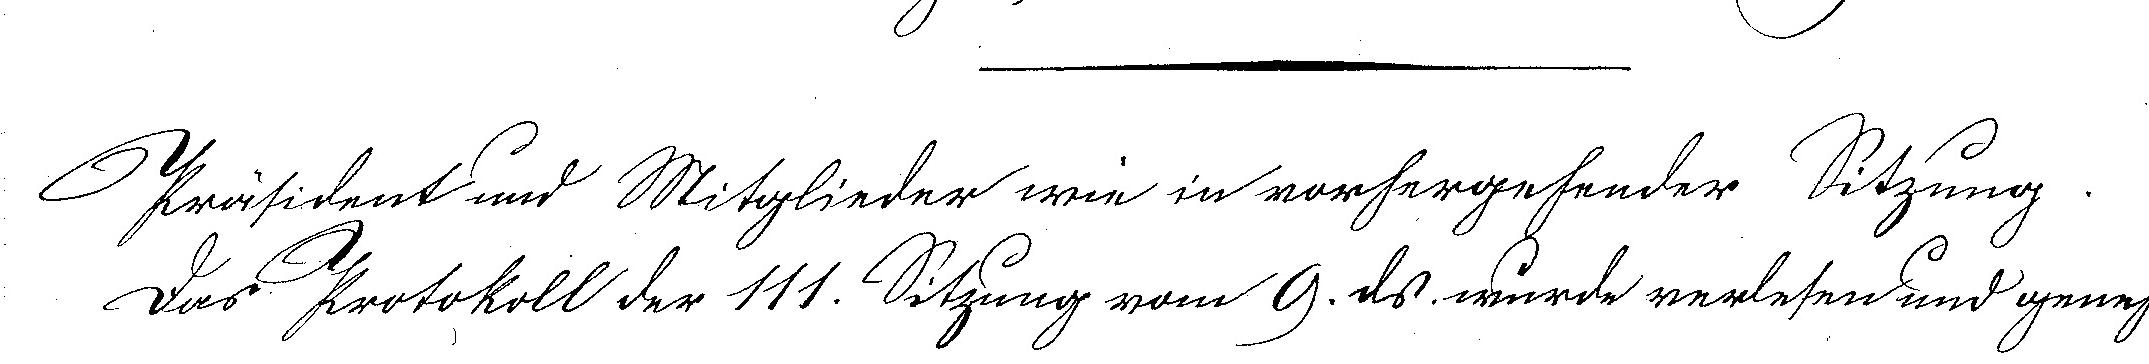 Präsident und Mitglieder wie in vorhergehender Sitzung.
Das Protokoll der 111. Sitzung vom 9. ds. wurde verlesen und geneh